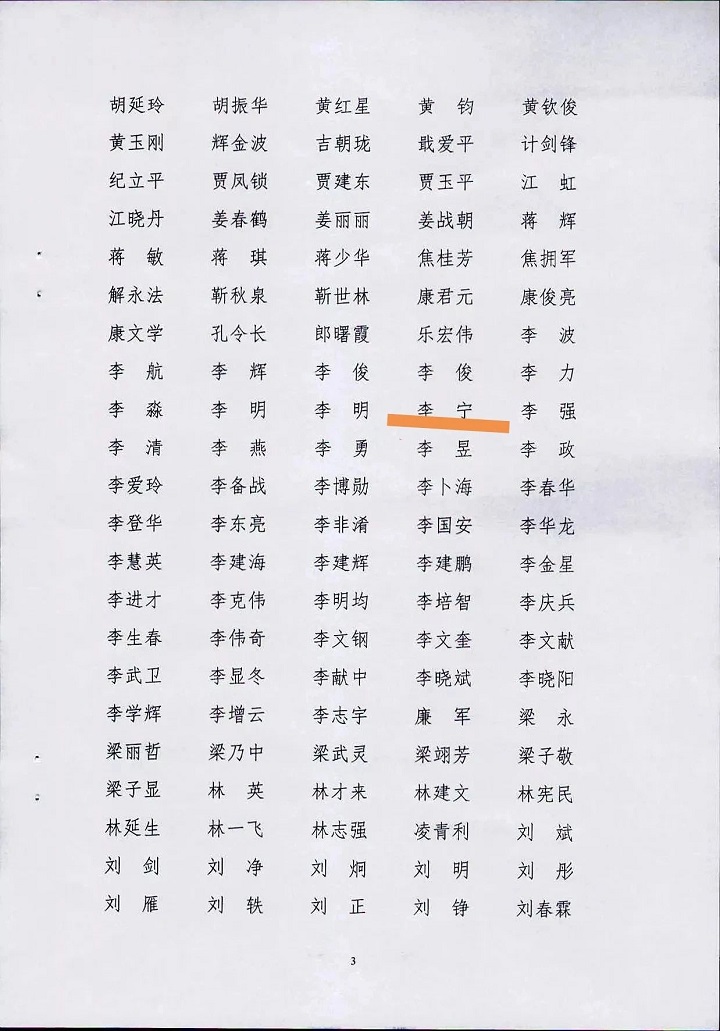 胡延玲 胡振华 黄红星 黄 钧 黄钦俊
黄玉刚 辉金波 吉朝珑 戢爱平 计剑锋
纪立平 贾凤锁 贾建东 贾玉平 江 虹
江晓丹 姜春鹤 姜丽丽 姜战朝 蒋 辉
蒋 敏 蒋 琪 蒋少华 焦桂芳 焦拥军
解永法 靳秋泉 靳世林 康君元 康俊亮
康文学 孔令长 郎曙霞 乐宏伟 李 波
李 航 李 辉 李 俊 李 俊 李 力
李 淼 李 明 李 明 李 宁 李 强
李 清 李 燕 李 勇 李 昱 李 政
李爱玲 李备战 李博勋 李卜海 李春华
李登华 李东亮 李非淆 李国安 李华龙
李慧英 李建海 李建辉 李建鹏 李金星
李进才 李克伟 李明均 李培智 李庆兵
李生春 李伟奇 李文钢 李文奎 李文献
李武卫 李显冬 李献中 李晓斌 李晓阳
李学辉 李增云 李志宇 廉 军 梁 永
梁丽哲 梁乃中 梁武灵 梁翊芳 梁子敬
梁子显 林 英 林才来 林建文 林宪民
林延生 林一飞 林志强 凌青利 刘 斌
刘 剑 刘 净 刘 炯 刘 明 刘 彤
刘 雁 刘 轶 刘 正 刘 铮 刘春霖
3